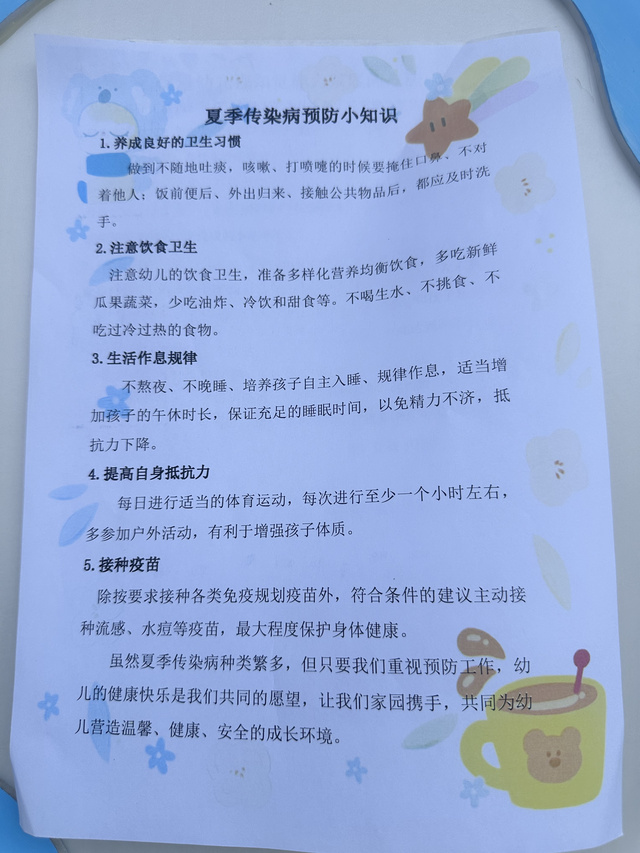 夏季传染病预防小知识
1.养成良好的卫生习惯
做到不随地吐痰，咳嗽、打喷嚏的时候要掩住口鼻、不对
着他人；饭前便后、外出归来、接触公共物品后，都应及时洗
手。
2.注意饮食卫生
注意幼儿的饮食卫生，准备多样化营养均衡饮食，多吃新鲜
瓜果蔬菜，少吃油炸、冷饮和甜食等。不喝生水、不挑食、不
吃过冷过热的食物。
3.生活作息规律
不熬夜、不晚睡、培养孩子自主入睡、规律作息，适当增
加孩子的午休时长，保证充足的睡眠时间，以免精力不济，抵
抗力下降。
4.提高自身抵抗力
每日进行适当的体育运动，每次进行至少一个小时左右，
多参加户外活动，有利于增强孩子体质。
5.接种疫苗
除按要求接种各类免疫规划疫苗外，符合条件的建议主动接
种流感、水痘等疫苗，最大程度保护身体健康。
虽然夏季传染病种类繁多，但只要我们重视预防工作，幼
儿的健康快乐是我们共同的愿望，让我们家园携手，共同为幼
儿营造温馨、健康、安全的成长环境。